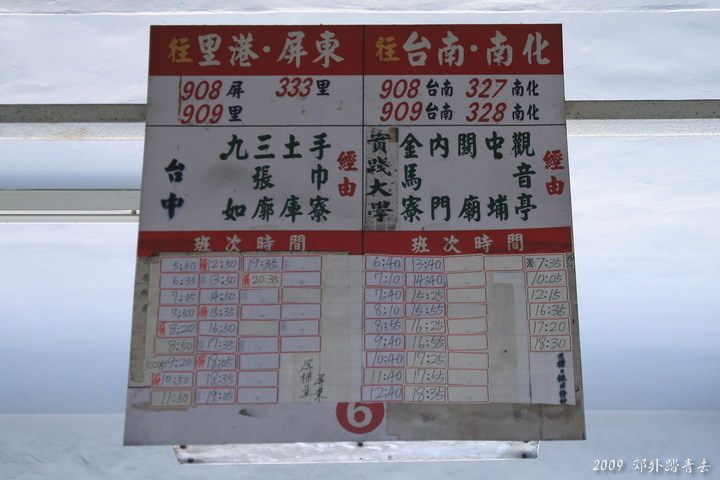 往里港·屏東
908 屏 333 里
909 里
手巾寮
土庫
三張廓
九如
台中
經由
班次時間
5:50 屏12:50 19:35
6:35 13:50 屏20:35
7:05 14:50
7:50 屏15:35
屏8:20 16:50
8:50 17:35
10:05 9:20 屏18:05
屏10:50 18:35
11:50 19:05
屏東
往台南·南化
908 台南 327 南化
909 台南 328 南化
觀音亭
中埔
關廟
內門
金馬寮
實踐大學
經由
班次時間
6:40 13:40 ※7:35
7:10 14:40 10:05
7:40 15:25 12:15
8:10 15:55 16:35
8:55 16:25 17:20
9:40 16:55 18:30
10:40 17:25
11:40 17:55
12:40 18:35
6
2009 郊外踏青去